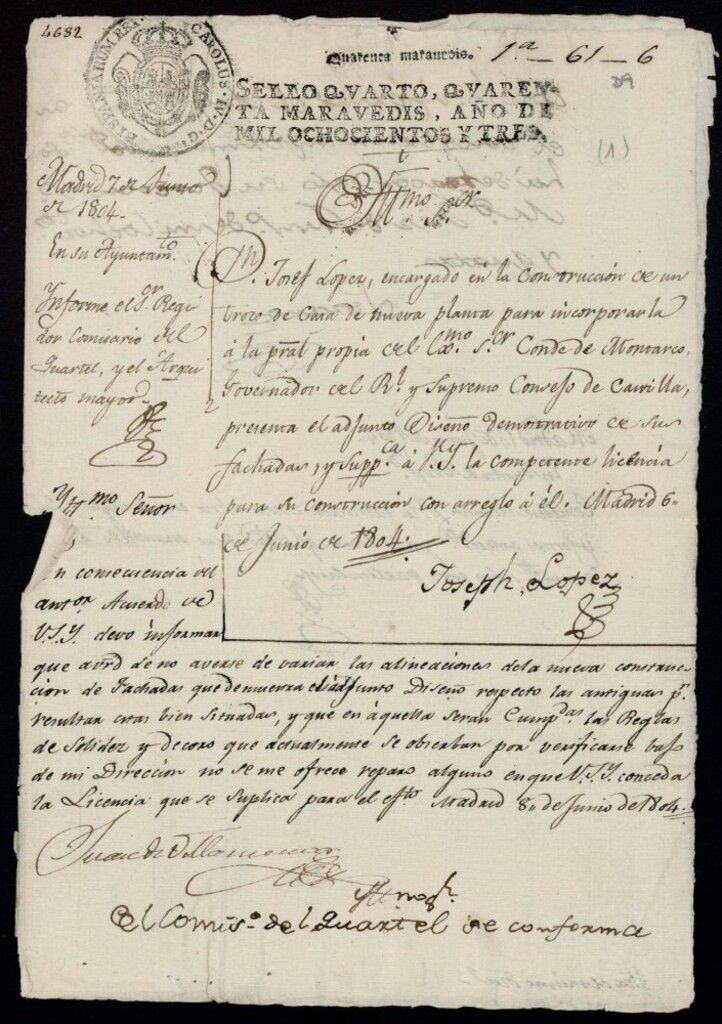 4682
HISPANIARUM REX CAROLUS IV D G
Quarenta maravedis.
1.ª - 61 - 6
39
SELLO QVARTO, QVAREN-
TA MARAVEDIS, AÑO DE
MIL OCHOCIENTOS Y TRES.
(1)
Madrid 7 de Junio
de 1804.
En su Ayuntam.to
Informe el S.or Regi
dor Comisario del
Quartel, y el Arqui
tecto mayor
Yll.mo S.or
D. Josef Lopez, encargado en la Construcción de un
trozo de Casa de nueva planta para incorporarla
á la pral propia del Exmo. S.or Conde de Montarco,
Governador del R.l y Supremo Consejo de Castilla,
presenta el adjunto Diseño demostrativo de sus
fachadas, y Supp.ca á V.S.Y. la competente licencia
para su construcción con arreglo á él. Madrid 6
de Junio de 1804.
Joseph Lopez
Yll.mo Señor
En consecuencia del
antor. Acuerdo de
V.S.Y. devo informar
que atrd de no averse de variar las alineaciones dela nueva construc
cion de Fachadas que demuestra el adjunto Diseño respecto las antiguas p.r
resultar estas bien situadas, y que en àquella seran Cump.das las Reglas
de Solidez y decoro que actualmente se observan por verificarse bajo
de mi Direccion no se me ofrece reparo alguno en que V.S.Y. conceda
la Licencia que se suplica para el efto. Madrid 8 de Junio de 1804.
Juan de Villanueva
Yllmo Sr.
El Comis.o del Quartel se conforma